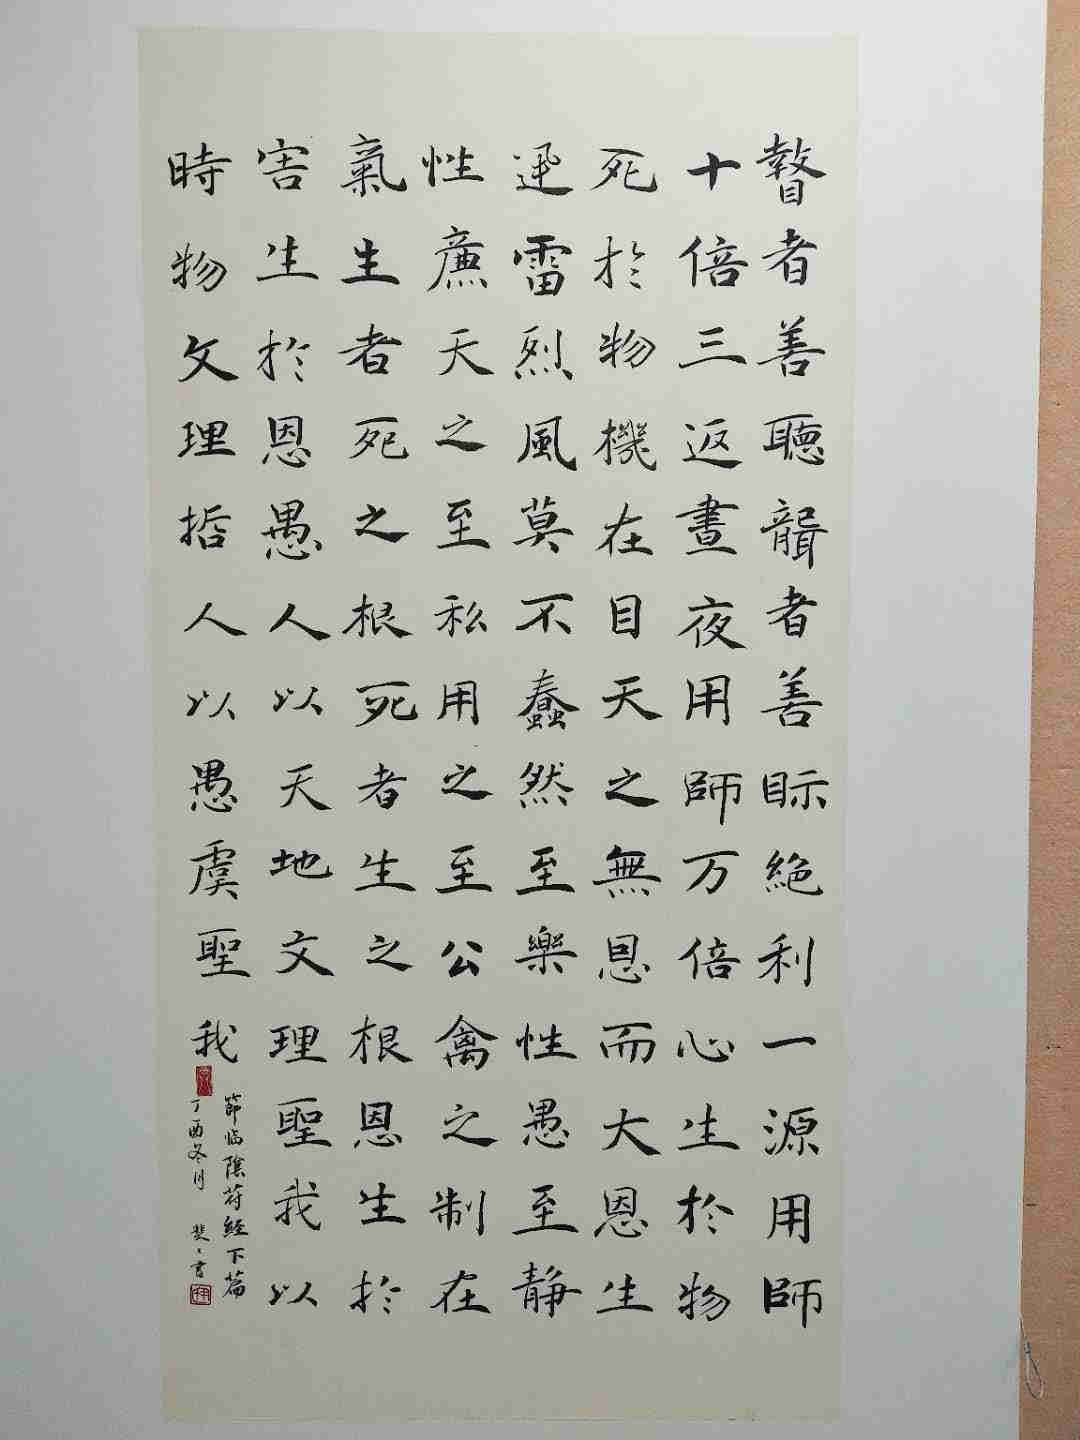 瞽者善聽聾者善眎絕利一源用師
十倍三返晝夜用師万倍心生於物
死於物機在目天之無恩而大恩生
迅雷烈風莫不蠢然至樂性愚至静
性廉天之至私用之至公禽之制在
氣生者死之根死者生之根恩生於
害生於恩愚人以天地文理聖我以
時物文理哲人以愚虞聖我
節临陰符經下篇
丁酉冬月 書